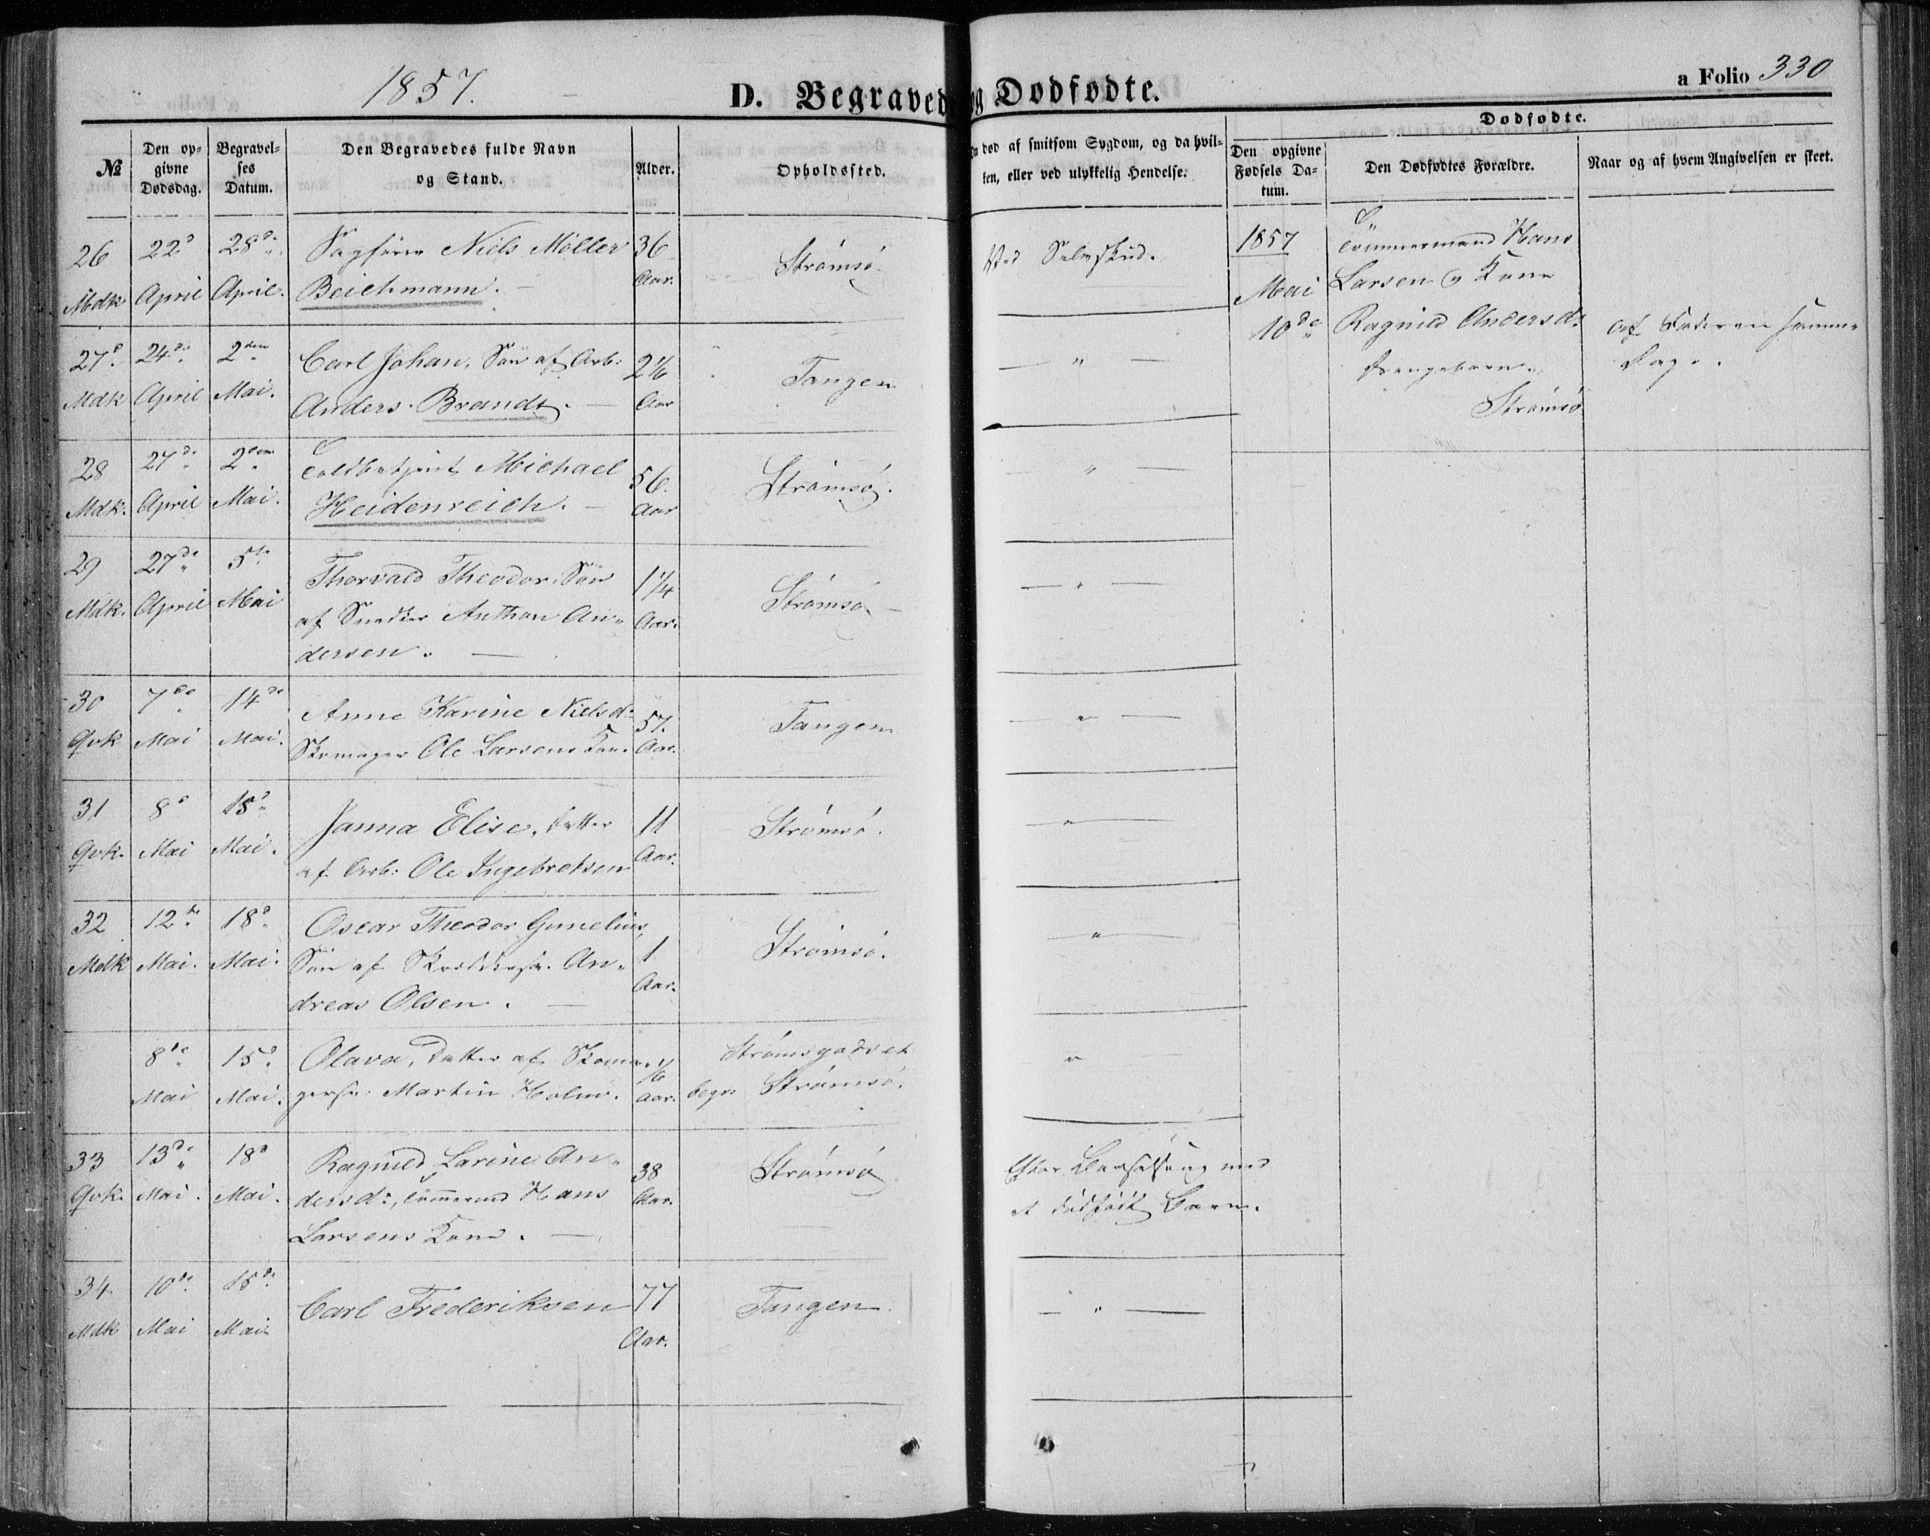 1857.
D. Begravede og Dødfødte.
a Folio 330
№
Den opgivne Dødsdag.
Begravelses Datum.
Den Begravedes fulde Navn og Stand.
Alder.
Opholdssted.
død af smitsom Sygdom, og da hvilken, eller ved ulykkelig Hendelse.
Dødfødte.
Den opgivne Fødsels Datum.
Den Dødfødtes Forældre.
Naar og af hvem Angivelsen er skeet.
26 22d 28de Sagfører Niels Møller 36 Strømsø Ved Selvskud.
Mdk April April. Beichmann. Aar.
27d 24de 2den Carl Johan, Søn af Arb: 2 1/6 Tangen — " —
Mdk April Mai. Anders Brandt. Aar
28 27de 2den Toldbetjent Michael 56 Strømsø. — " —
Mdk. April Mai. Heidenreich. Aar
29 27de 5te Thorvald Theodor, Søn 1 1/4 Strømsø — " —
Mdk. April Mai af Snedker Anthon An- Aar.
dersen.
30 7de 14de Anne Karine Nielsd: 57. Tangen — " —
Qvk Mai Mai. Skomager Ole Larsens Kone Aar.
31 8d 15d Janna Elise, Datter 11 Strømsø. — " —
Qvk. Mai Mai. af Arb: Ole Ingebretsen Aar.
32 12te 18d Oscar Theodor Gunelius, 1 Strømsø. — " —
Mdk Mai. Mai. Søn af Skræddersv. An- Aar.
dreas Olsen.
8de 15d Olava, Datter af Skoma- 1/6 Strømsgodset "
Mai Mai. gersv: Martin Holm. Aar. begr: Strømsø.
33 13de 18d Ragnild Larine An- 38 Strømsø Efter Barselseng med
Qvk. Mai. Mai. dersd:, Tømmermd Hans Aar. et dødfødt Barn.
Larsens Kone.
34 10de 15de Carl Frederiksen 77 Tangen. — " —
Mdk Mai Mai Aar.
1857 Tømmermand Hans
Mai Larsen og Kone
10de Ragnild Andersd: af Faderen samme
Drengebarn. Dag.
Strømsø